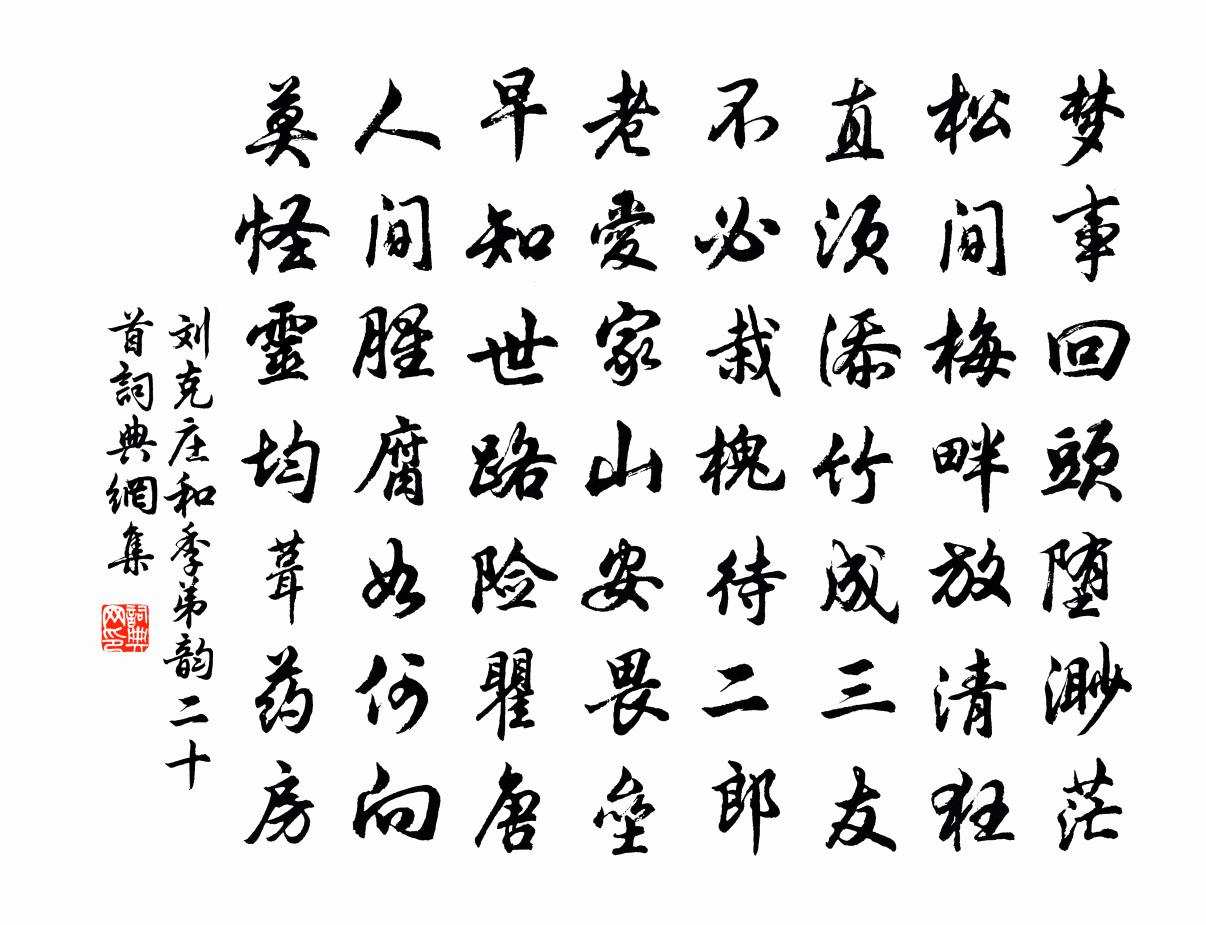 梦事回頭堕渺茫
松间梅畔放清狂
直须添竹成三友
不必栽槐待二郎
老愛家山安畏垒
早知世路险瞿唐
人间腥腐如何向
莫怪靈均葺药房
刘克庄和季弟韵二十
首詞典網集
詞典
网印